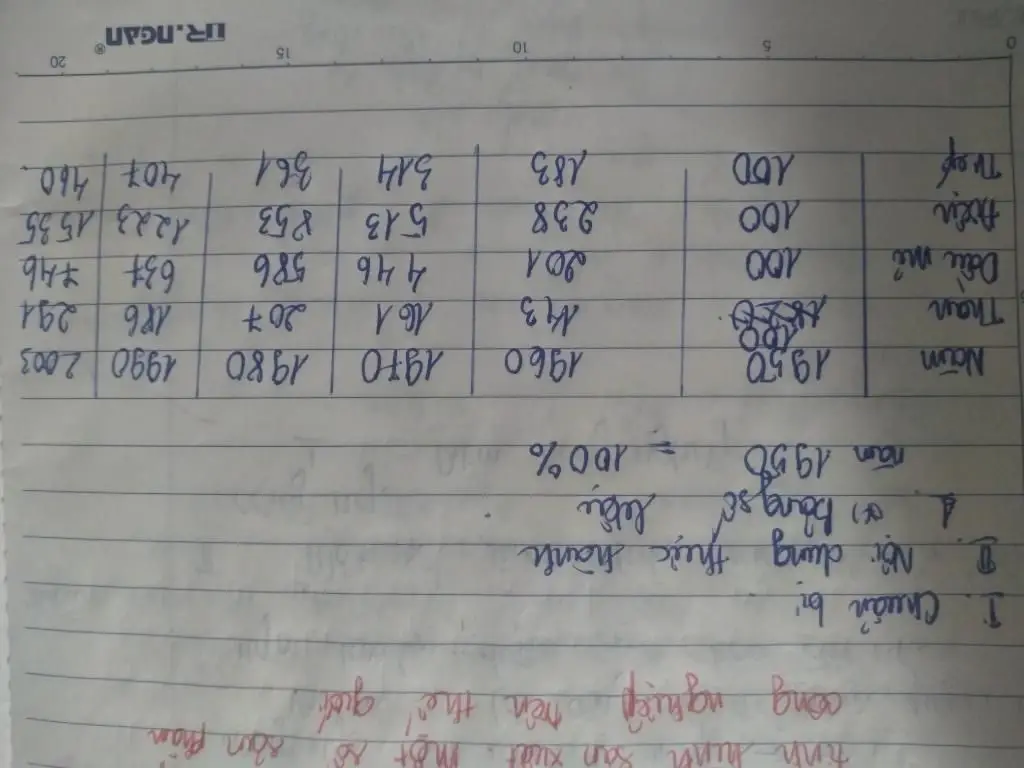 tình hình sản xuất một số sản phẩm
công nghiệp trên thế giới
I. Chuẩn bị
II. Nội dung thực hành
1. (*) bảng số liệu
năm 1950 = 100%
Năm 1950 1960 1970 1980 1990 2003
Than 100 143 161 207 186 291
Dầu mỏ 100 201 446 586 637 746
Điện 100 238 513 853 1223 1535
Thép 100 183 314 361 407 460
0 5 10 15 20
TR.NGAN®